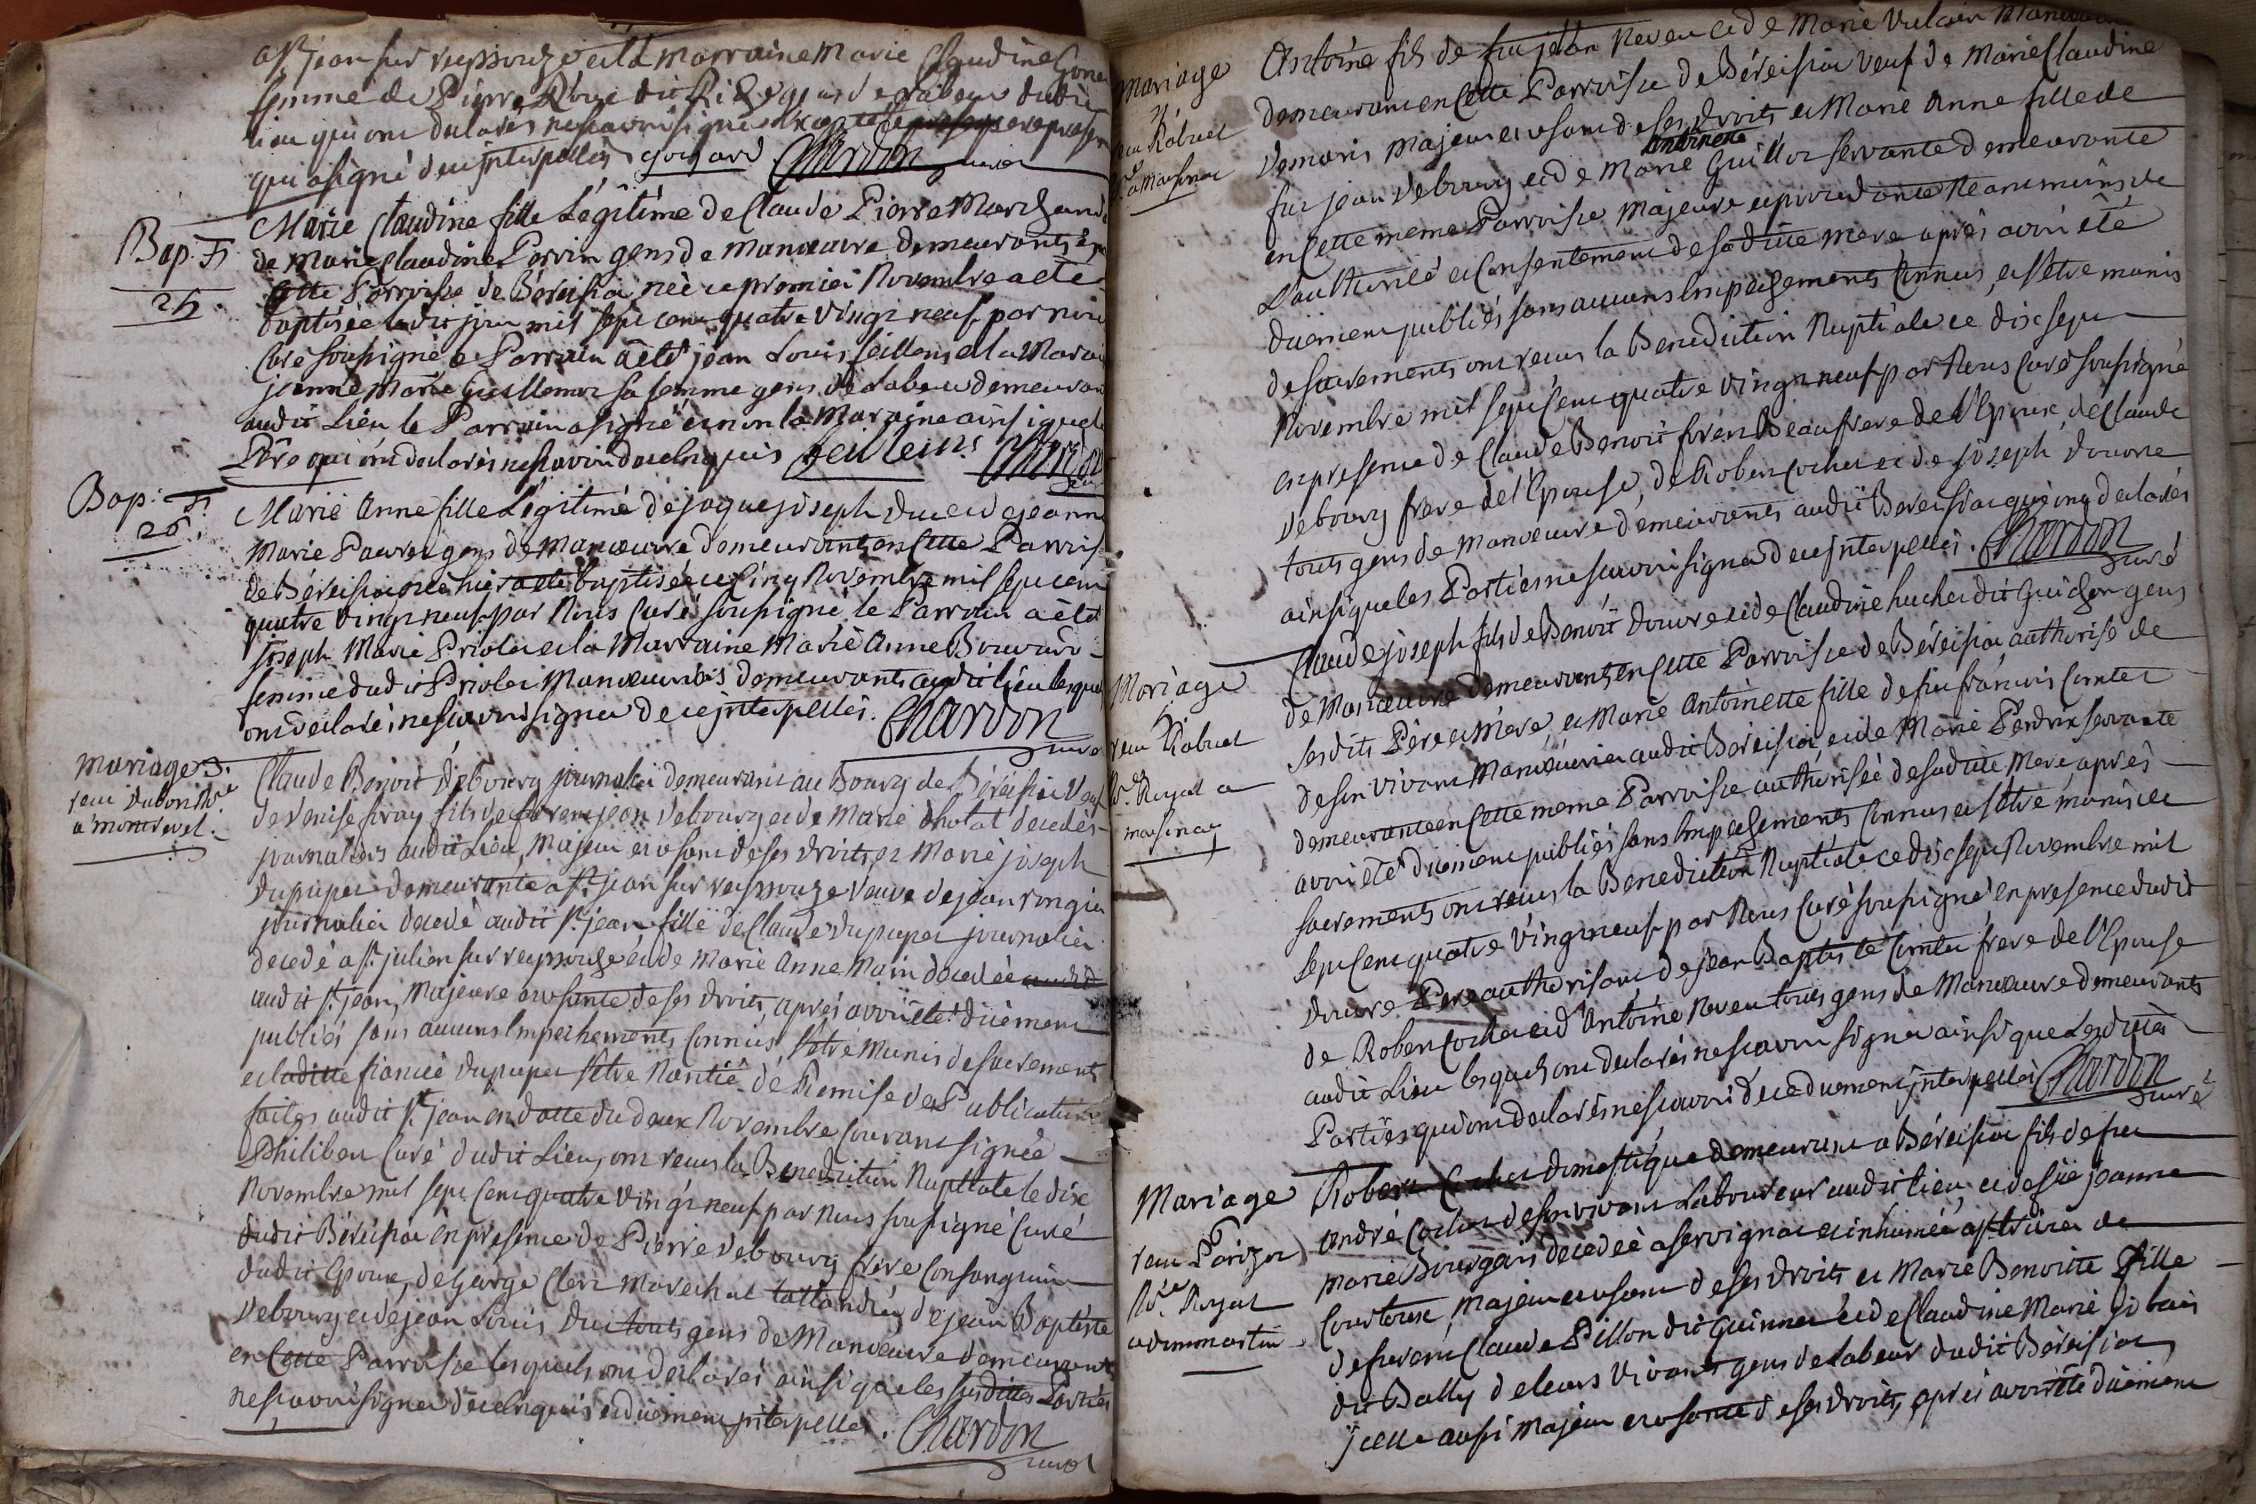 a st jean sur reyssouze et la marraine marie Claudine
femme de Pierre dit gens de labeur dudit
lieu qui ont declarés ne scavoir signer excepté
qui a signé de ce interpellés goyard Chardon curé
Bap. F.
25
Marie Claudine fille Légitime de Claude Pierre Marchand
de marie Claudine Perrin gens de manœuvre demeurants
cette Parroisse de Béréisiat néé ce premier Novembre a été
baptisée ledit jour mil sept cent quatre vingt neuf par nous
Curé soussigné le Parrain a été jean Louis feillens et la Marraine
jeanne Marie Guillemot sa femme gens de Labeur demeurant
audit Lieu le Parrain a signé et non la Maraine ainsi que le
Pere qui ont declarés ne scavoir de ce enquis feillens Chardon
Bap. F.
26
Marie Anne fille Légitime de jaque joseph Duc et de jeanne
Marie Pauvret gens de manœuvre demeurants en cette Parroisse
de Béréisiat néé hier a eté baptisée ce Cinq Novembre mil sept cent
quatre vingt neuf par Nous Curé soussigné le Parrain a été
joseph Marie Priolet et la Marraine Marie Anne Bouvard
femme dudit Priolet Manœuvriés demeurants audit lieu lesquels
ont declarés ne scavoir signer de ce interpellés. Chardon
curé
mariage 3.
reue Dubon Nre
a montrevel.
Claude Benoit Debourg journalier demeurant au Bourg de Béréisiat Veuf
de Denise foray fils de jean Debourg et de Marie Chotat decedés
journaliers audit Lieu, Majeur et usant de ses Droits et Marie joseph
Dupuget demeurante a st jean sur reyssouze Veuve de jean
journalier decedé audit st jean fille de Claude Dupuget journalier
decedé a st julien sur reyssouze et de Marie Anne Main decedée
audit st jean, Majeure et usante de ses Droits, après avoir été dûement
publiés sans aucuns Impechements Connus, s'etre Munis de sacrements
et laditte fiancée Dupuget s'etre Nantie de Remise de Publications
faites audit st jean en datte du deux Novembre Courant signée
Philibert Curé dudit Lieu, ont reçus la Benediction Nuptiale le dix
Novembre mil sept Cent quatre Vingt neuf par Nous soussigné Curé
dudit Béréisiat en présence de Pierre Debourg frère Consanguin
dudit Epoux, de George Clerc Marechal tattandier, de jean Baptiste
Debourg et de jean Louis Duc touts gens de Manœuvre demeurants
en Cette Parroisse lesquels ont declarés ainsi que les susdittes Parties
ne scavoir signer de ce enquis et dûement interpellés. Chardon
curé
Mariage
4
reue Robuet
a Marsonas
Antoine fils de feu jean Neveu et de Marie Vulain Manœuvre
demeurant en Cette Parroisse de Béréisiat Veuf de Marie Claudine
Demaris Majeur et usant de ses Droits et Marie Anne fille de
feu jean Debourg et de Marie antoinette Guillot servante demeurante
en Cette meme Parroisse Majeure et procedante Neanmoins de
L'authorité et Consentement de sa ditte Mere après avoir été
dûement publiés sans aucuns Impechements Connus, et s'etre munis
de sacrements ont reçus la Benediction Nuptiale ce dix sept
Novembre mil sept Cent quatre Vingt neuf par Nous Curé soussigné
en presence de Claude Benoit forén Beaufrere de l'Epoux, de Claude
Debourg frere de l'Epouse, de Robert Cochet et de joseph Douvre
touts gens de manœuvre demeurants audit Béréisiat qui ont declarés
ainsi que les Parties ne scavoir signer de ce interpellés. Chardon
curé
Mariage
5
reue Robuet
Nre Royal a
marsonas
Claude joseph fils de Benoit Douvre et de Claudine huchet dit Guichon gens
de Manœuvre demeurants en Cette Parroisse de Béréisiat authorisé de
ses dits Père et Mere, et Marie Antoinette fille de feu françois Comtet
de son vivant Manœuvrier audit Béréisiat et de Marie Perdrix servante
demeurante en Cette meme Parroisse authorisée de sa ditte Mere, après
avoir été dûement publiés sans Impechements Connus et s'etre munis de
sacrements ont reçus la Benediction Nuptiale ce dix sept Novembre mil
sept Cent quatre Vingt neuf par Nous Curé soussigné en presence dudit
Douvre Pere authorisant de jean Baptiste Comtet frere de l'Epouse
de Robert Cochet et d'Antoine Neveu touts gens de Manœuvre demeurants
audit Lieu lesquels ont declarés ne scavoir signer ainsi que Lesdittes
Parties qui ont declarés ne scavoir de ce dûement interpellés Chardon
curé
Mariage
reue Parizot
Nre Royal
a dommartin
Robert Cochet domestique demeurant a Béréisiat fils de feu
André Cochet de son vivant Laboureur audit lieu, et de füe jeanne
Marie Bourgeois decedée a servignat et inhumée a st trivier de
Courtoux, Majeur et usant de ses Droits et Marie Benoitte fille
de Claude Pillon dit Guinnet et de Claudine Marie
dit Bally de leurs Vivants gens de Labeur dudit Béréisiat
jcelle aussi Majeur et usante de ses Droits, après avoir été dûement